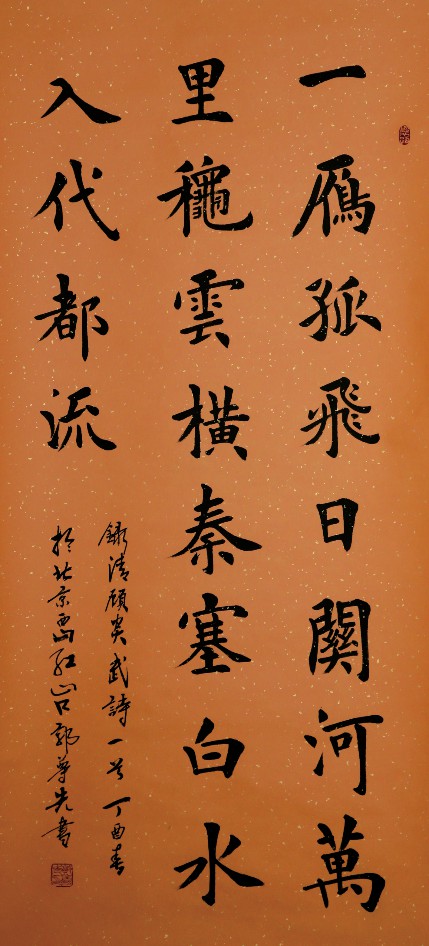 一鴈孤飛日關河萬
里龝雲橫秦塞白水
入代都流
錄清顧炎武詩一首丁酉春
於北京西山红山口郭尊先書